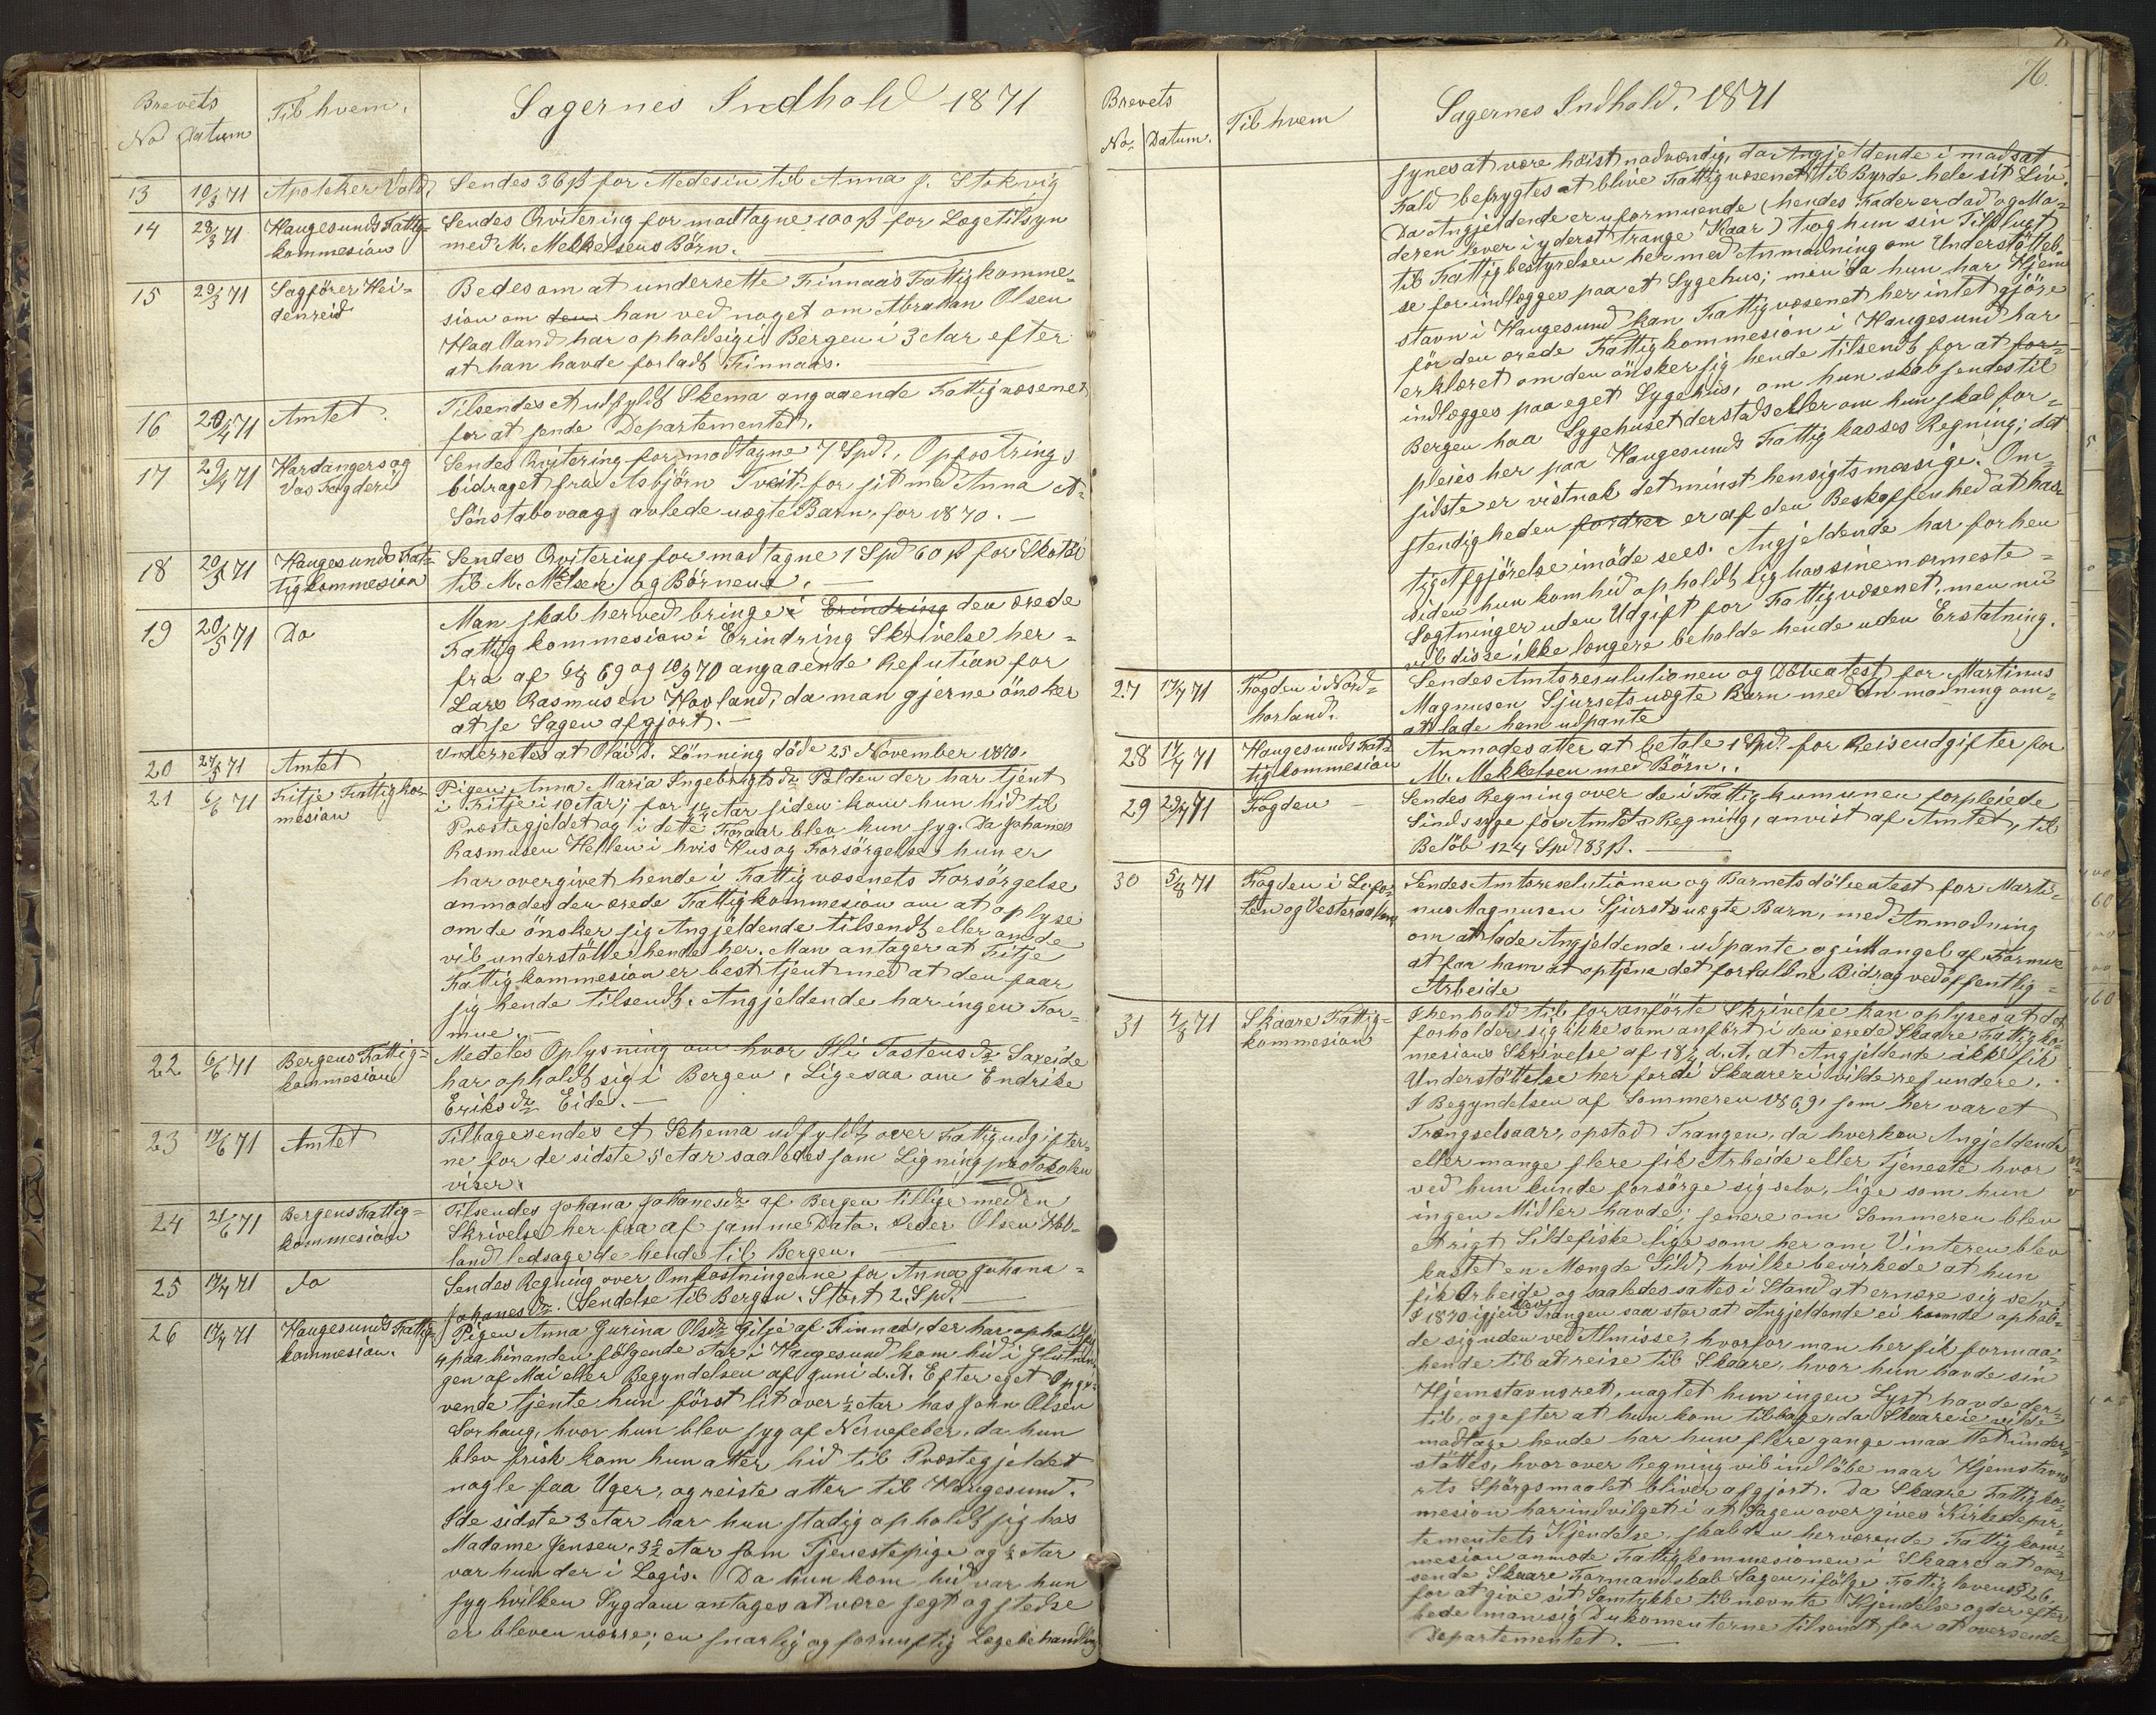 Brevets
No Datum
Til hvem.
Sagernes Indhold 1871
13 10/3 71 Apoteker Vold. Sendes 36 ß for Medesin til Anna J. Stokvig
14 28/3 71 Haugesunds Fattig= Sendes Qvitering for modtagne 100 ß for Lægetilsyn
kommesion med M. Mekkelsens Börn.
15 29/3 71 Sagförer Hei= Bedes om at underrette Finnaas Fattigkomme=
denreid sion om den han ved noget om Abraham Olsen
Haaland har opholdt sig i Bergen i 3 Aar efter
at han havde forladt Finnaas.
16 20/4 71 Amtet. Tilsendes et udfyldt Skema angaaende Fattigvæsenet
for at sende Departementet.
17 29/4 71 Hardangers og Sendes Qvitering for modtagne 7 Spd. Opfostrings
Vos Fogderi bidraget fra Asbjörn Tveit for sit med Anna A.
Sönstabovaag avlede uægte Barn, for 1870.
18 20/5 71 Haugesunds Fat= Sendes Qvitering for modtagne 1 Spd 60 ß for Skotöi
tigkommesion til M. Mekelsen og Börnene.
19 20/5 71 Do Man skal herved bringe i Erindring den ærede
Fattigkommesion i Erindring Skrivelse her=
fra af 6/8 69 og 10/9 70 angaaende Refution for
Lars Rasmusen Hovland, da man gjerne önsker
at se Sagen afgjort.
20 24/5 71 Amtet Underrettes at Ola D. Lönning döde 25 November 1870.
21 6/6 71 Fitje Fattigkom= Pigen Anna Maria Ingebrigtsdr Palden der har tjent
mesion i Fitje i 10 Aar; for 1 1/4 Aar siden kom hun hid til
Præstegjeldet og i dette Foraar blev hun syg. Da Johanes
Rasmusen Hellen i hvis Hus og Forsörgelse hun er
har overgivet hende i Fattigvæsenets Forsörgelse
anmodes den ærede Fattigkommesion om at oplyse
om de önsker sig Angjeldende tilsendt eller om de
vil understötte hende her. Man antager at Fitje
Fattigkommesion er best tjent med at den faar
sig hende tilsendt. Angjeldende har ingen For=
mue.
22 6/6 71 Bergens Fattig= Medeles Oplysning om hvor Ili Tostensdr Saxeide
kommesion har opholdt sig i Bergen. Ligesaa om Endrike
Eriksdr Eide.
23 17/6 71 Amtet Tilbagesendes et Schema udfyldt over Fattigudgifter=
ne for de sidste 5 Aar saaledes som Ligningsprotokolen
viser.
24 21/6 71 Bergens Fattig= Tilsendes Johana Johanesdr af Bergen tillige med en
kommesion Skrivelse her fra af samme Dato. Peder Olsen Hob=
land ledsagede hende til Bergen.
25 17/7 71 do Sendes Regning over Omkostningerne for Anna Johana=
Johanesdr. Sendelse til Bergen. Stort 2 Spd.
26 17/7 71 Haugesunds Fattig= Pigen Anna Gurina Olsdr Gilje af Finnaas, der har opholdt sig
kommesion. 4 paa hinanden fölgende Aar i Haugesund kom hid i Slutnin=
gen af Mai eller Begyndelsen af Juni d. A. Efter eget Opgi=
vende tjente hun först lit over 1/2 Aar hos John Olsen
Sorhaug, hvor hun blev syg af Nervefeber, da hun
blev frisk kom hun atter hid til Præstegjeldet
nogle faa Uger, og reiste atter til Haugesund.
I de sidste 3 Aar har hun stadig opholdt sig hos
Madame Jensen, 3 1/2 Aar som Tjenestepige og 1/2 Aar
var hun der i Logis. Da hun kom hid var hun
syg hvilken Sygdom antages at være Gegt og stedse
er bleven værre; en snarlig og fornuftig Lægebehandling
76.
Brevets
No. Datum.
Til hvem
Sagernes Indhold. 1871
synes at være höist nödvendig, da Angjeldende i modsat
Fald befrygtes at blive Fattigvæsenet til Byrde hele sit Liv.
Da Angjeldende er uformuende (hendes Fader er död og Mo=
deren lever i yderst trange Kaar) tog hun sin Tilflugt
til Fattigbestyrelsen her med Anmodning om Understöttel=
se for indlægges paa et Sygehus; men da hun har Hjem
stavn i Haugesund kan Fattigvæsenet her intet gjöre
för den ærede Fattigkommesion i Haugesund har
erklæret om den önsker sig hende tilsendt for at for=
indlægges paa eget Sygehus, om hun skal sendes til
Bergen paa Sygehuset dersteds eller om hun skal for=
pleies her paa Haugesunds Fattigkasses Regning; det
sidste er vistnok det minst hensigtsmæssige. Om=
stendigheden fordrer er af den Beskaffenhed at has=
tig Afgjörelse imöde sees. Angjeldende har forhen
siden hun kom hid opholdt sig hos sine nærmeste=
Sægtninger uden Udgift for Fattigvæsenet, men nu
vil disse ikke længere beholde hende uden Erstatning.
27 17/7 71 Fogden i Nord= Sendes Amtsresulutionen og Döbeatest for Martinus
horland. Magnusen Sjursets uægte Barn med Anmodning om=
at lade ham udpante
28 17/7 71 Haugesunds Fat= Anmodes atter at betale 1 Spd. for Reiseudgifter for
tigkommesion M. Mekkelsen med Börn.
29 29/7 71 Fogden Sendes Regning over de i Fattigkumunen forpleiede
Sindssyge for Amtets Regning, anvist af Amtet, til
Belöb 124 Spd 83 ß.
30 5/8 71 Fogden i Lofo= Sendes Amtsresolutionen og Barnets döbeatest for Marti=
ten og Vesteraalen nus Magnusen Sjursets uægte Barn, med Anmodning
om at lade Angjeldende udpante og i Mangel af Formue
at faa ham at optjene det forfaldne Bidrag ved offentlig=
Arbeide
31 4/8 71 Skaare Fattig= I henhold til foranförte Skrivelse kan oplyses at det
kommesion forholder sig ikke som anfört i den erede Skaare Fattigko=
mesions Skrivelse af 18/7 d. A. at Angjeldende ikke fik
Understöttelse her fordi Skaare ei vilde refundere.
I Begyndelsen af Sommeren 1869, som her var et
Trængselsaar, opstod Trangen, da hverken Angjeldende
eller mange flere fik Arbeide eller Tjeneste hvor
ved hun kunde forsörge sig selv, lige som hun
ingen Midler havde; senere om Sommeren blev
et rigt Sildefiske lige som her om Vinteren blev
kastet en Mængde Sild, hvilke bevirkede at hun
fik Arbeide og saaledes sattes i Stand at ernære sig selv
I 1870 igjen blev Trangen saa stor at Angjeldende ei kunde ophol=
de sig uden ved Almisse, hvorfor man her fik formaa=
hende til at reise til Skaare, hvor hun havde sin
Hjemstavnsret, uagtet hun ingen Lyst havde der=
til, og efter at hun kom tilbage, da Skaare ei vilde
modtage hende har hun flere gange maattet under=
stöttes, hvor over Regning vil indlöbe naar Hjemstavns
rts Spörgsmaalet bliver afgjort. Da Skaare Fattigko=
mesion har indvilget i at Sagen overgives Kirkedepar=
tementets Kjendelse, skal den herværende Fattigkom=
mesion anmode Fattigkommesionen i Skaare at over
sende Skaare Formandskab Sagen, ifölge Fattiglovens § 26.
for at give sit Samtykke til nævnte Kjendelse og der efter
bede man sig Dukomenterne tilsendt for at oversende
Departementet.